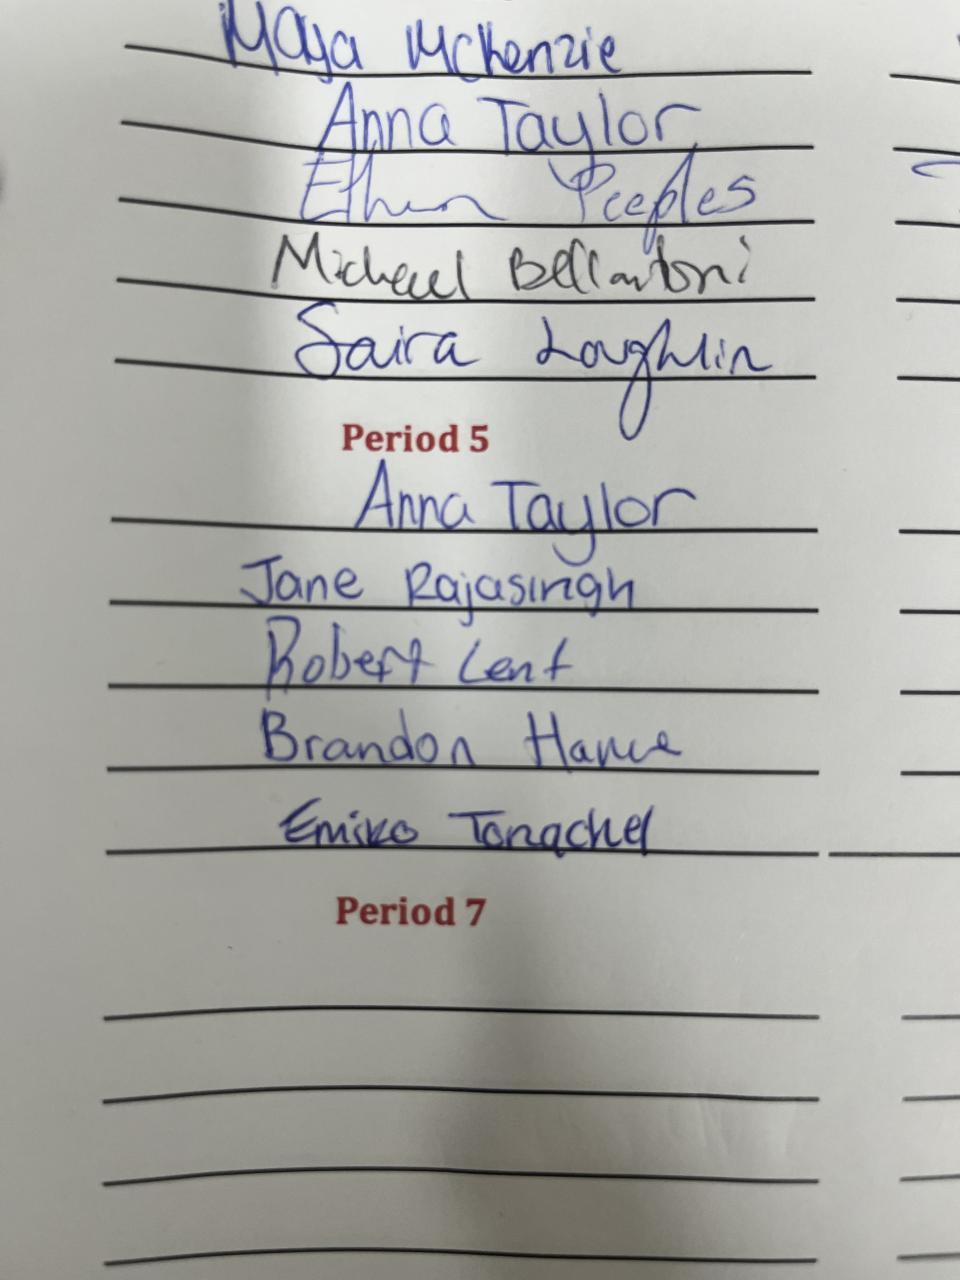 Maya McKenzie
Anna Taylor
Ethan Peeples
Michael Bellantoni
Saira Loughlin
Period 5
Anna Taylor
Jane Rajasingh
Robert Lent
Brandon
Emiko Tonachel
Period 7